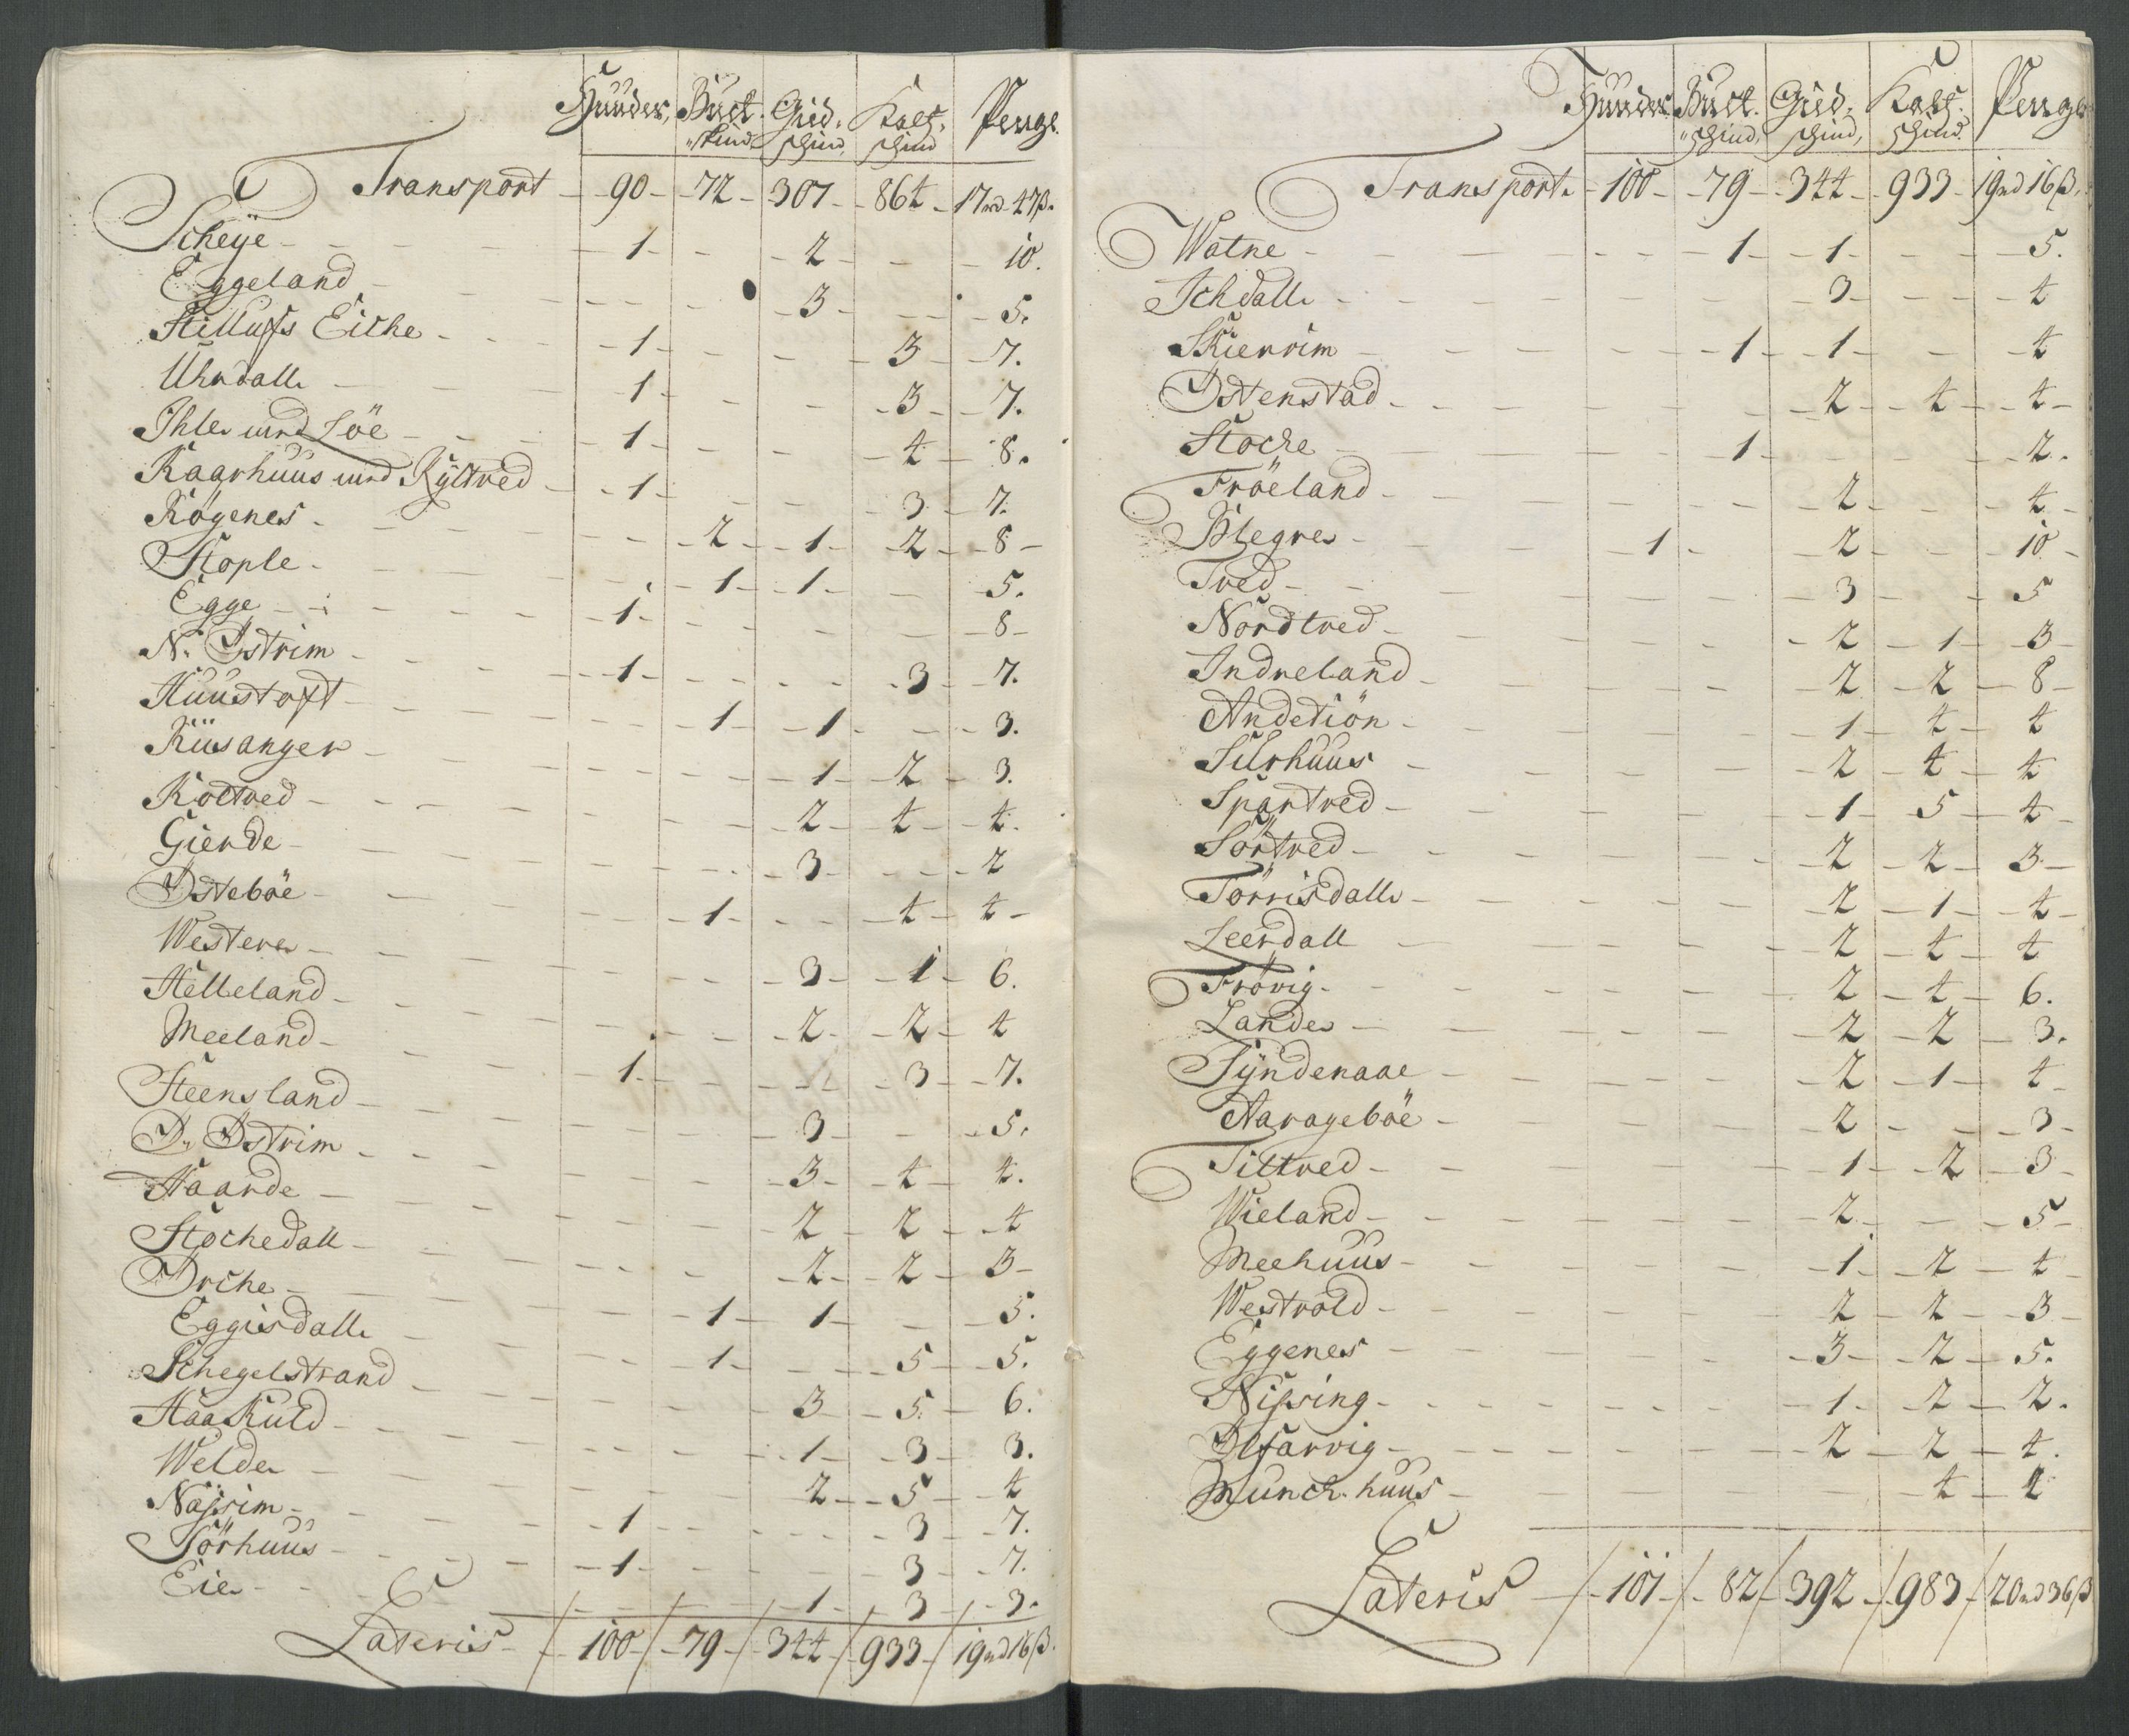 Huuder, Buct. Gied. Kalf. Penge.
skind schind, schind
Transport 90 - 72 - 307 - 864 - 17 rd 47 ß.
Scheÿe - 1 - 2 - 10.
Eggeland - 3 - 5.
Stillufs Eiche - 1 - 3 - 7.
Uhrdall - 1 - 3 - 7.
Ihle und Löe - 1 - 4 - 8.
Kaarhuus und Kÿltved - 1 - 3 - 7.
Kögenes - 2 - 1 - 2 - 8
Stople - 1 - 1 - 5.
Egge - 1 - 8
N. Østrim - 1 - 3 - 7.
Huustoft - 1 - 1 - 3.
Riisanger - 1 - 2 - 3.
Koltved - 2 - 4 - 4.
Gierde - 3 - 2
Østeböe - 1 - 4 - 4
Westere - 3 - 1 - 6.
Helleland - 2 - 2 - 4
Meeland - 1 - 3 - 7.
Steensland - 3 - 5.
D. Østrim - 3 - 4 - 4.
Haarde - 2 - 2 - 4
Stochedall - 2 - 2 - 3
Ørche - 1 - 1 - 5.
Eggisdall - 1 - 5 - 5.
Schegelstrand - 3 - 5 - 6.
Haakuld - 1 - 3 - 3.
Welde - 2 - 5 - 4
Næssim - 1 - 3 - 7.
Törhuus - 1 - 3 - 7.
Eie - 1 - 3 - 3.
Lateris - 100 / 79 / 344 / 933 / 19 rd 16 ß.
Huuder Buct. Gied. Kalf. Penge
schind, schind, schind.
Transport - 100 - 79 - 344 - 933 - 19 rd 16 ß.
Watne - 1 - 1 - 5.
Ichdall - 3 - 4
Skierrim - 1 - 1 - 4
Østenstad - 2 - 4 - 4
Stoche - 1 - 2.
Fröeland - 2 - 4
Blegre - 1 - 2 - 10
Tved - 3 - 5
Nordtved - 2 - 1 - 3
Indreland - 2 - 2 - 8
Andetiön - 1 - 4 - 4
Silrhuus - 2 - 4 - 4
Spartved - 1 - 5 - 4
Sörtved - 2 - 2 - 3
Törrisdall - 2 - 1 - 4
Leerdall - 2 - 4 - 4
Frövig - 2 - 4 - 6.
Lande - 2 - 2 - 3.
Syndenaae - 2 - 1 - 4
Aarageböe - 2 - 3
Tiltved - 1 - 2 - 3
Wieland - 2 - 5
Meehuus - 1 - 2 - 4
Westvold - 2 - 2 - 3
Eggenes - 3 - 2 - 5.
Nissing - 1 - 2 - 2.
Olfarvig - 2 - 2 - 4.
Munch huus - 4 - 4
Lateris / 101 / 82 / 392 / 983 / 20 rd 36 ß